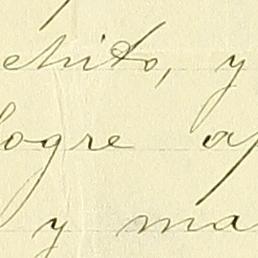 chito, y
logre
y ma